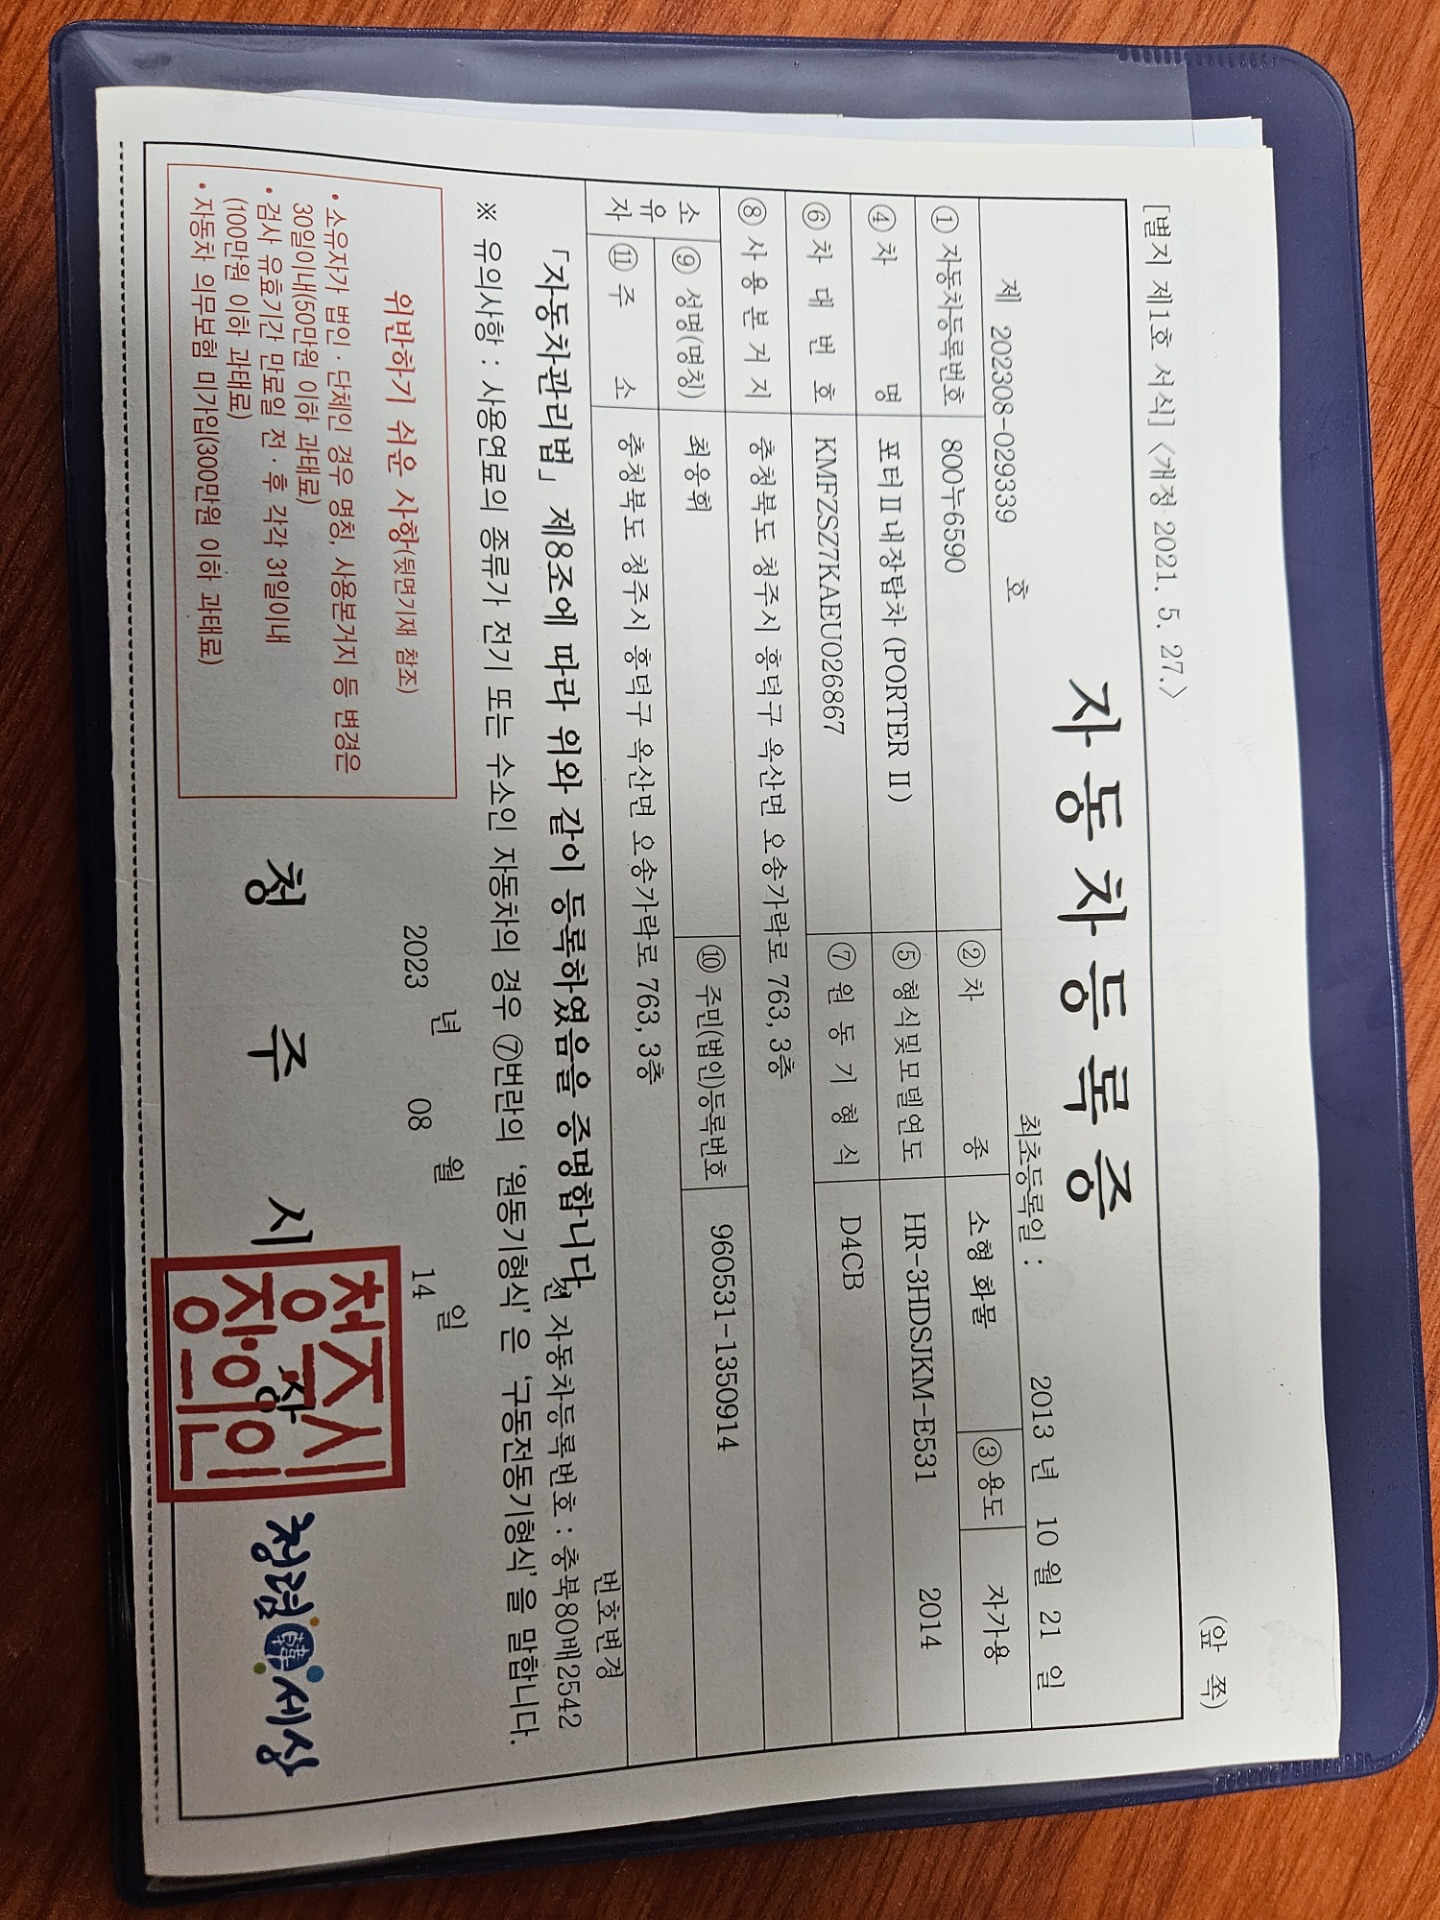 [별지 제1호 서식] <개정 2021. 5. 27.>
(앞 쪽)
자동차등록증
제 202308-029339 호
최초등록일 : 2013 년 10 월 21 일
① 자동차등록번호 800누6590 ② 차 종 소형 화물 ③ 용도 자가용
④ 차 명 포터Ⅱ내장탑차 (PORTER Ⅱ) ⑤ 형식및모델연도 HR-3HDSJKM-E531 2014
⑥ 차 대 번 호 KMFZSZ7KAEU026867 ⑦ 원 동 기 형 식 D4CB
⑧ 사 용 본 거 지 충청북도 청주시 흥덕구 옥산면 오송가락로 763, 3층
소유자 ⑨ 성명(명칭) 최웅휘 ⑩ 주민(법인)등록번호 960531-1350914
⑪ 주 소 충청북도 청주시 흥덕구 옥산면 오송가락로 763, 3층
번호변경
「자동차관리법」 제8조에 따라 위와 같이 등록하였음을 증명합니다.
전 자동차등록번호 : 충북80배2542
※ 유의사항 : 사용연료의 종류가 전기 또는 수소인 자동차의 경우 ⑦번란의 '원동기형식' 은 '구동전동기형식' 을 말합니다.
위반하기 쉬운 사항(뒷면기재 참조)
• 소유자가 법인·단체인 경우 명칭, 사용본거지 등 변경은
30일이내(50만원 이하 과태료)
• 검사 유효기간 만료일 전·후 각각 31일이내
(100만원 이하 과태료)
• 자동차 의무보험 미가입(300만원 이하 과태료)
2023 년 08 월 14 일
청 주 시 장
청주시장의인
청렴韓세상